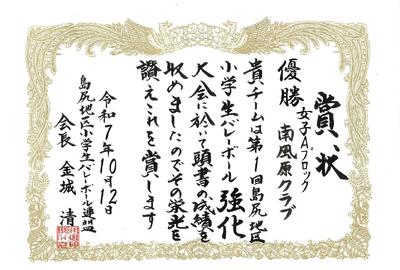 賞状
優勝
女子Aブロック
南風原クラブ
貴チームは第1回島尻地区
小学生バレーボール強化
大会に於いて頭書の成績を
収めましたのでその栄光を
讃えこれを賞します
令和7年10月12日
島尻地区小学生バレーボール連盟
会長 金城 清